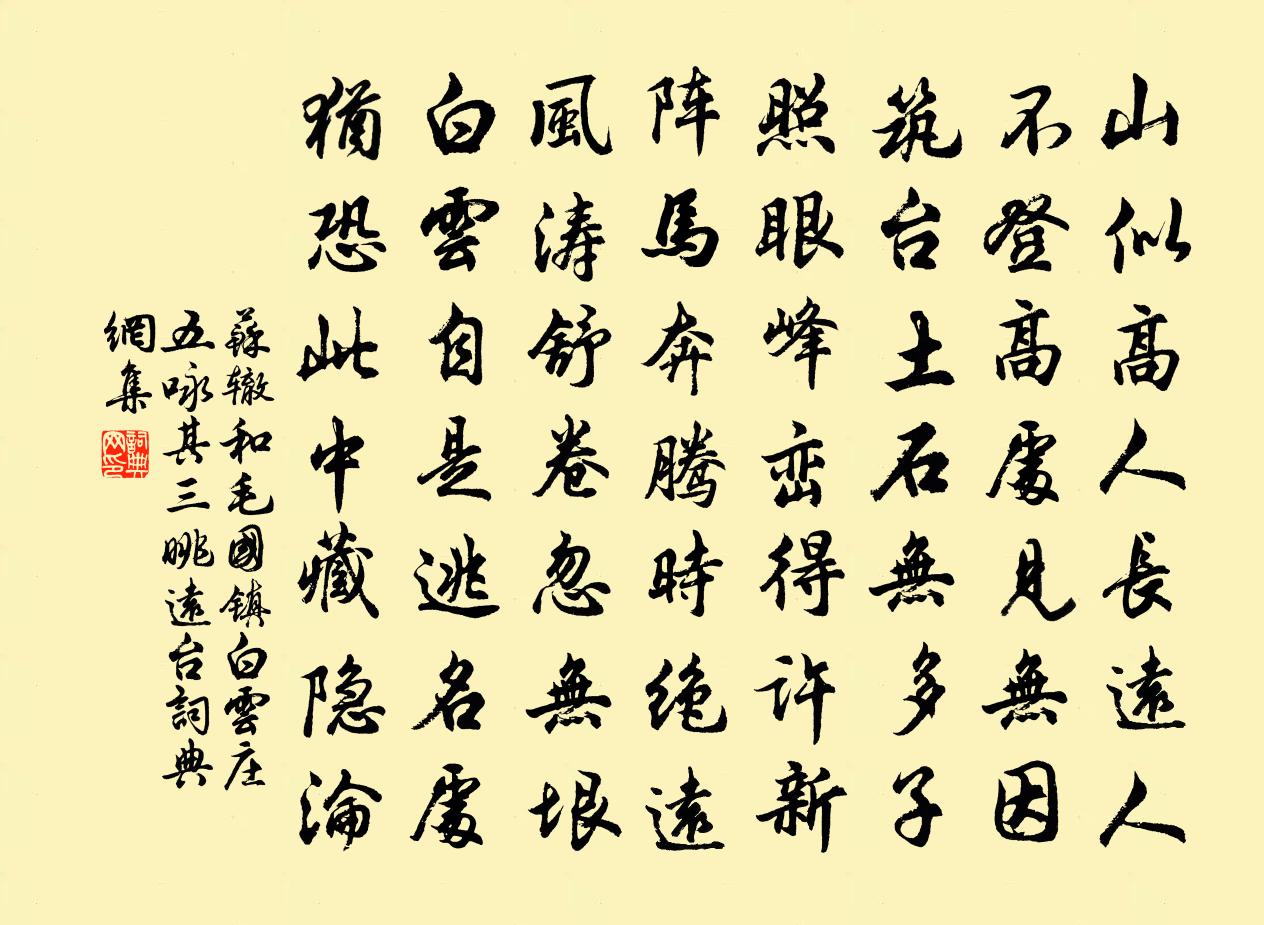 山似高人長遠人
不登高處見無因
筑台土石無多子
照眼峰峦得许新
阵馬奔腾時绝遠
風涛舒卷忽無垠
白雲自是逃名處
猶恐此中藏隐淪
蘇辙和毛國镇白雲庄
五咏其三眺遠台詞典
網集
詞典网印